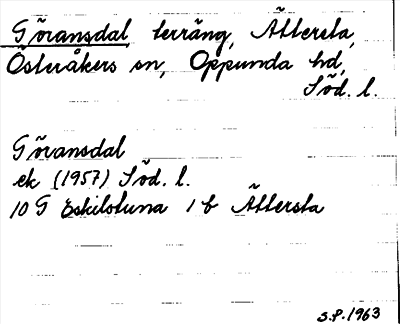 Göransdal, terräng, Ättersta,
Österåkers sn, Oppunda hd,
Söd. l.
Göransdal
ek (1957) Söd. l.
10 G Eskilstuna 1 b Ättersta
S.P. 1963